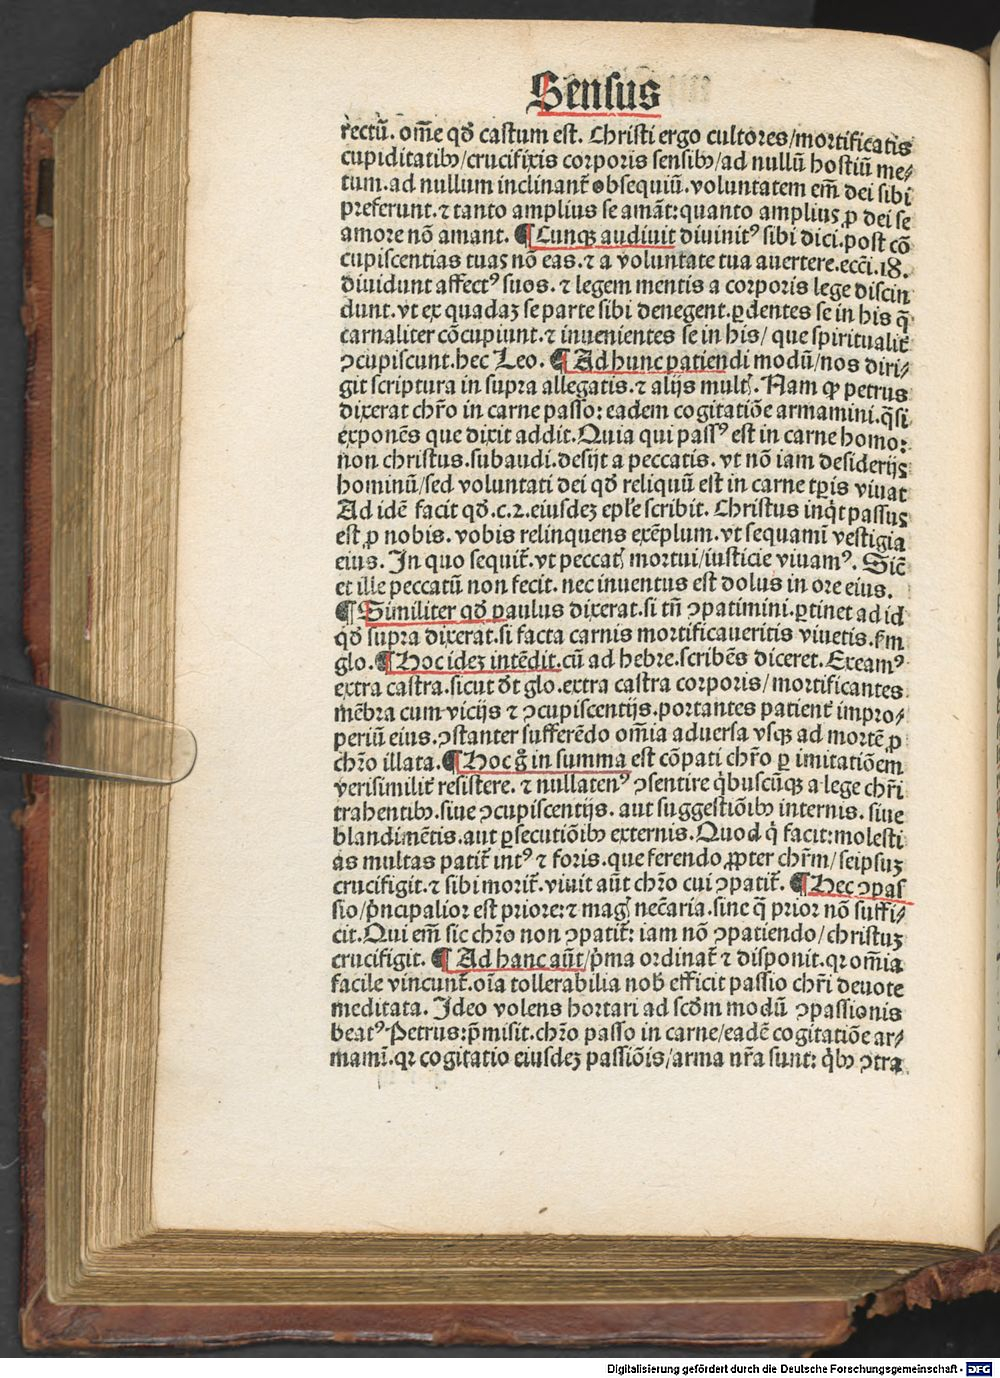 Sensus
rectū. om̄e qđ castum est. Christi ergo cultores/mortificatis
cupiditatibꝫ/crucifixis corporis sensibꝫ/ad nullū hostiū me⸗
tum. ad nullum inclinant̄ obsequiū. voluntatem em̄ dei sibi
preferunt. ⁊ tanto amplius se amāt: quanto amplius ꝓ dei se
amore nō amant. ¶ Cunqꝫ audiuit diuinitꝰ sibi dici. post cō
cupiscentias tuas nō eas. ⁊ a voluntate tua auertere. ecci. 18.
diuidunt affectꝰ suos. ⁊ legem mentis a corporis lege discin
dunt. vt ex quadaꝫ se parte sibi denegent. ꝑdentes se in his q̄
carnaliter cōcupiunt. ⁊ inuenientes se in his/ que spiritualit̄
ꝯcupiscunt. hec Leo. ¶ Ad hunc patiendi modū/nos diri⸗
git scriptura in supra allegatis. ⁊ alijs multꝭ. Nam qꝫ petrus
dixerat chr̄o in carne passo: eadem cogitatiōe armamini. q̄si
exponēs que dixit addit. Quia qui passꝰ est in carne homo:
non christus. subaudi. desijt a peccatis. vt nō iam desiderijs
hominū/sed voluntati dei qđ reliquū est in carne tꝑis viuat
Ad idē facit qđ. c. 2. eiusdeꝫ ep̄le scribit. Christus inq̇t passus
est ꝓ nobis. vobis relinquens exēplum. vt sequamī vestigia
eius. In quo sequit̄. vt peccatꝭ mortui/iusticie viuamꝰ. Sic̄
et ille peccatū non fecit. nec inuentus est dolus in ore eius.
¶ Similiter qđ paulus dixerat. si tn̄ ꝯpatimini. ꝑtinet ad id
qđ supra dixerat. si facta carnis mortificaueritis viuetis. fm̄
glo. ¶ Hoc ideꝫ intēdit. cū ad hebre. scribēs diceret. Exeamꝰ
extra castra. sicut dt̄ glo. extra castra corporis/mortificantes
mēbra cum vicijs ⁊ ꝯcupiscentijs. portantes patient̄ impro⸗
periū eius. ꝯstanter sufferēdo om̄ia aduersa vsqꝫ ad mortē ꝓ
chr̄o illata. ¶ Hoc g̊ in summa est cōpati chr̄o ꝑ imitatiōem
verisimilit̄ resistere. ⁊ nullatenꝰ ꝯsentire q̇buscūqꝫ a lege chr̄i
trahentibꝫ. siue ꝯcupiscentijs. aut suggestiōibꝫ internis. siue
blandimētis. aut ꝑsecutiōibꝫ externis. Quod q̇ facit: molesti
as multas patit̄ intꝰ ⁊ foris. que ferendo ꝓpter chr̄m/seipsuꝫ
crucifigit. ⁊ sibi morit̄. viuit aūt chr̄o cui ꝯpatit̄. ¶ Hec ꝯpas
sio/p̄ncipalior est priore: ⁊ magꝭ nec̄aria. sine q̄ prior nō suffi⸗
cit. Qui em̄ sic chr̄o non ꝯpatit̄: iam nō ꝯpatiendo/christuꝫ
crucifigit. ¶ Ad hanc aūt/p̄ma ordinat̄ ⁊ disponit. qꝛ om̄ia
facile vincunt̄. oīa tollerabilia nob̄ efficit passio chr̄i deuote
meditata. Ideo volens hortari ad scd̄m modū ꝯpassionis
beatꝰ Petrus: p̄misit. chr̄o passo in carne/eadē cogitatiōe ar⸗
mamī. qꝛ cogitatio eiusdeꝫ passiōis/arma nr̄a sunt: q̇bꝫ ꝯtra
Digitalisierung gefördert durch die Deutsche Forschungsgemeinschaft - DFG